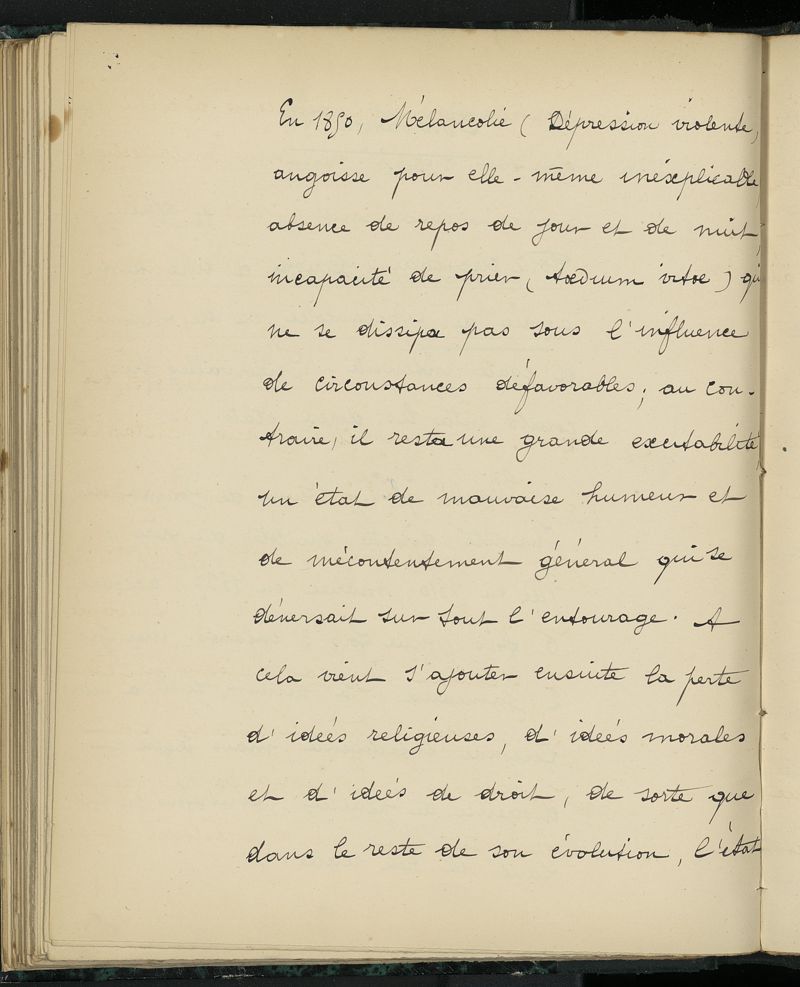 En 1850, Mélancolie (Dépression violente,
angoisse pour elle-même inéxplicable,
absence de repos de jour et de nuit,
incapacité de prier, tœdium vitœ) qui
ne se dissipa pas sous l'influence
de circonstances défavorables; au con-
traire, il resta une grande excitabilité,
un état de mauvaise humeur et
de mécontentement général qui se
déversait sur tout l'entourage. A
cela vient s'ajouter ensuite la perte
d'ideés religieuses, d'ideés morales
et d'ideés de droit, de sorte que
dans le reste de son évolution, l'état